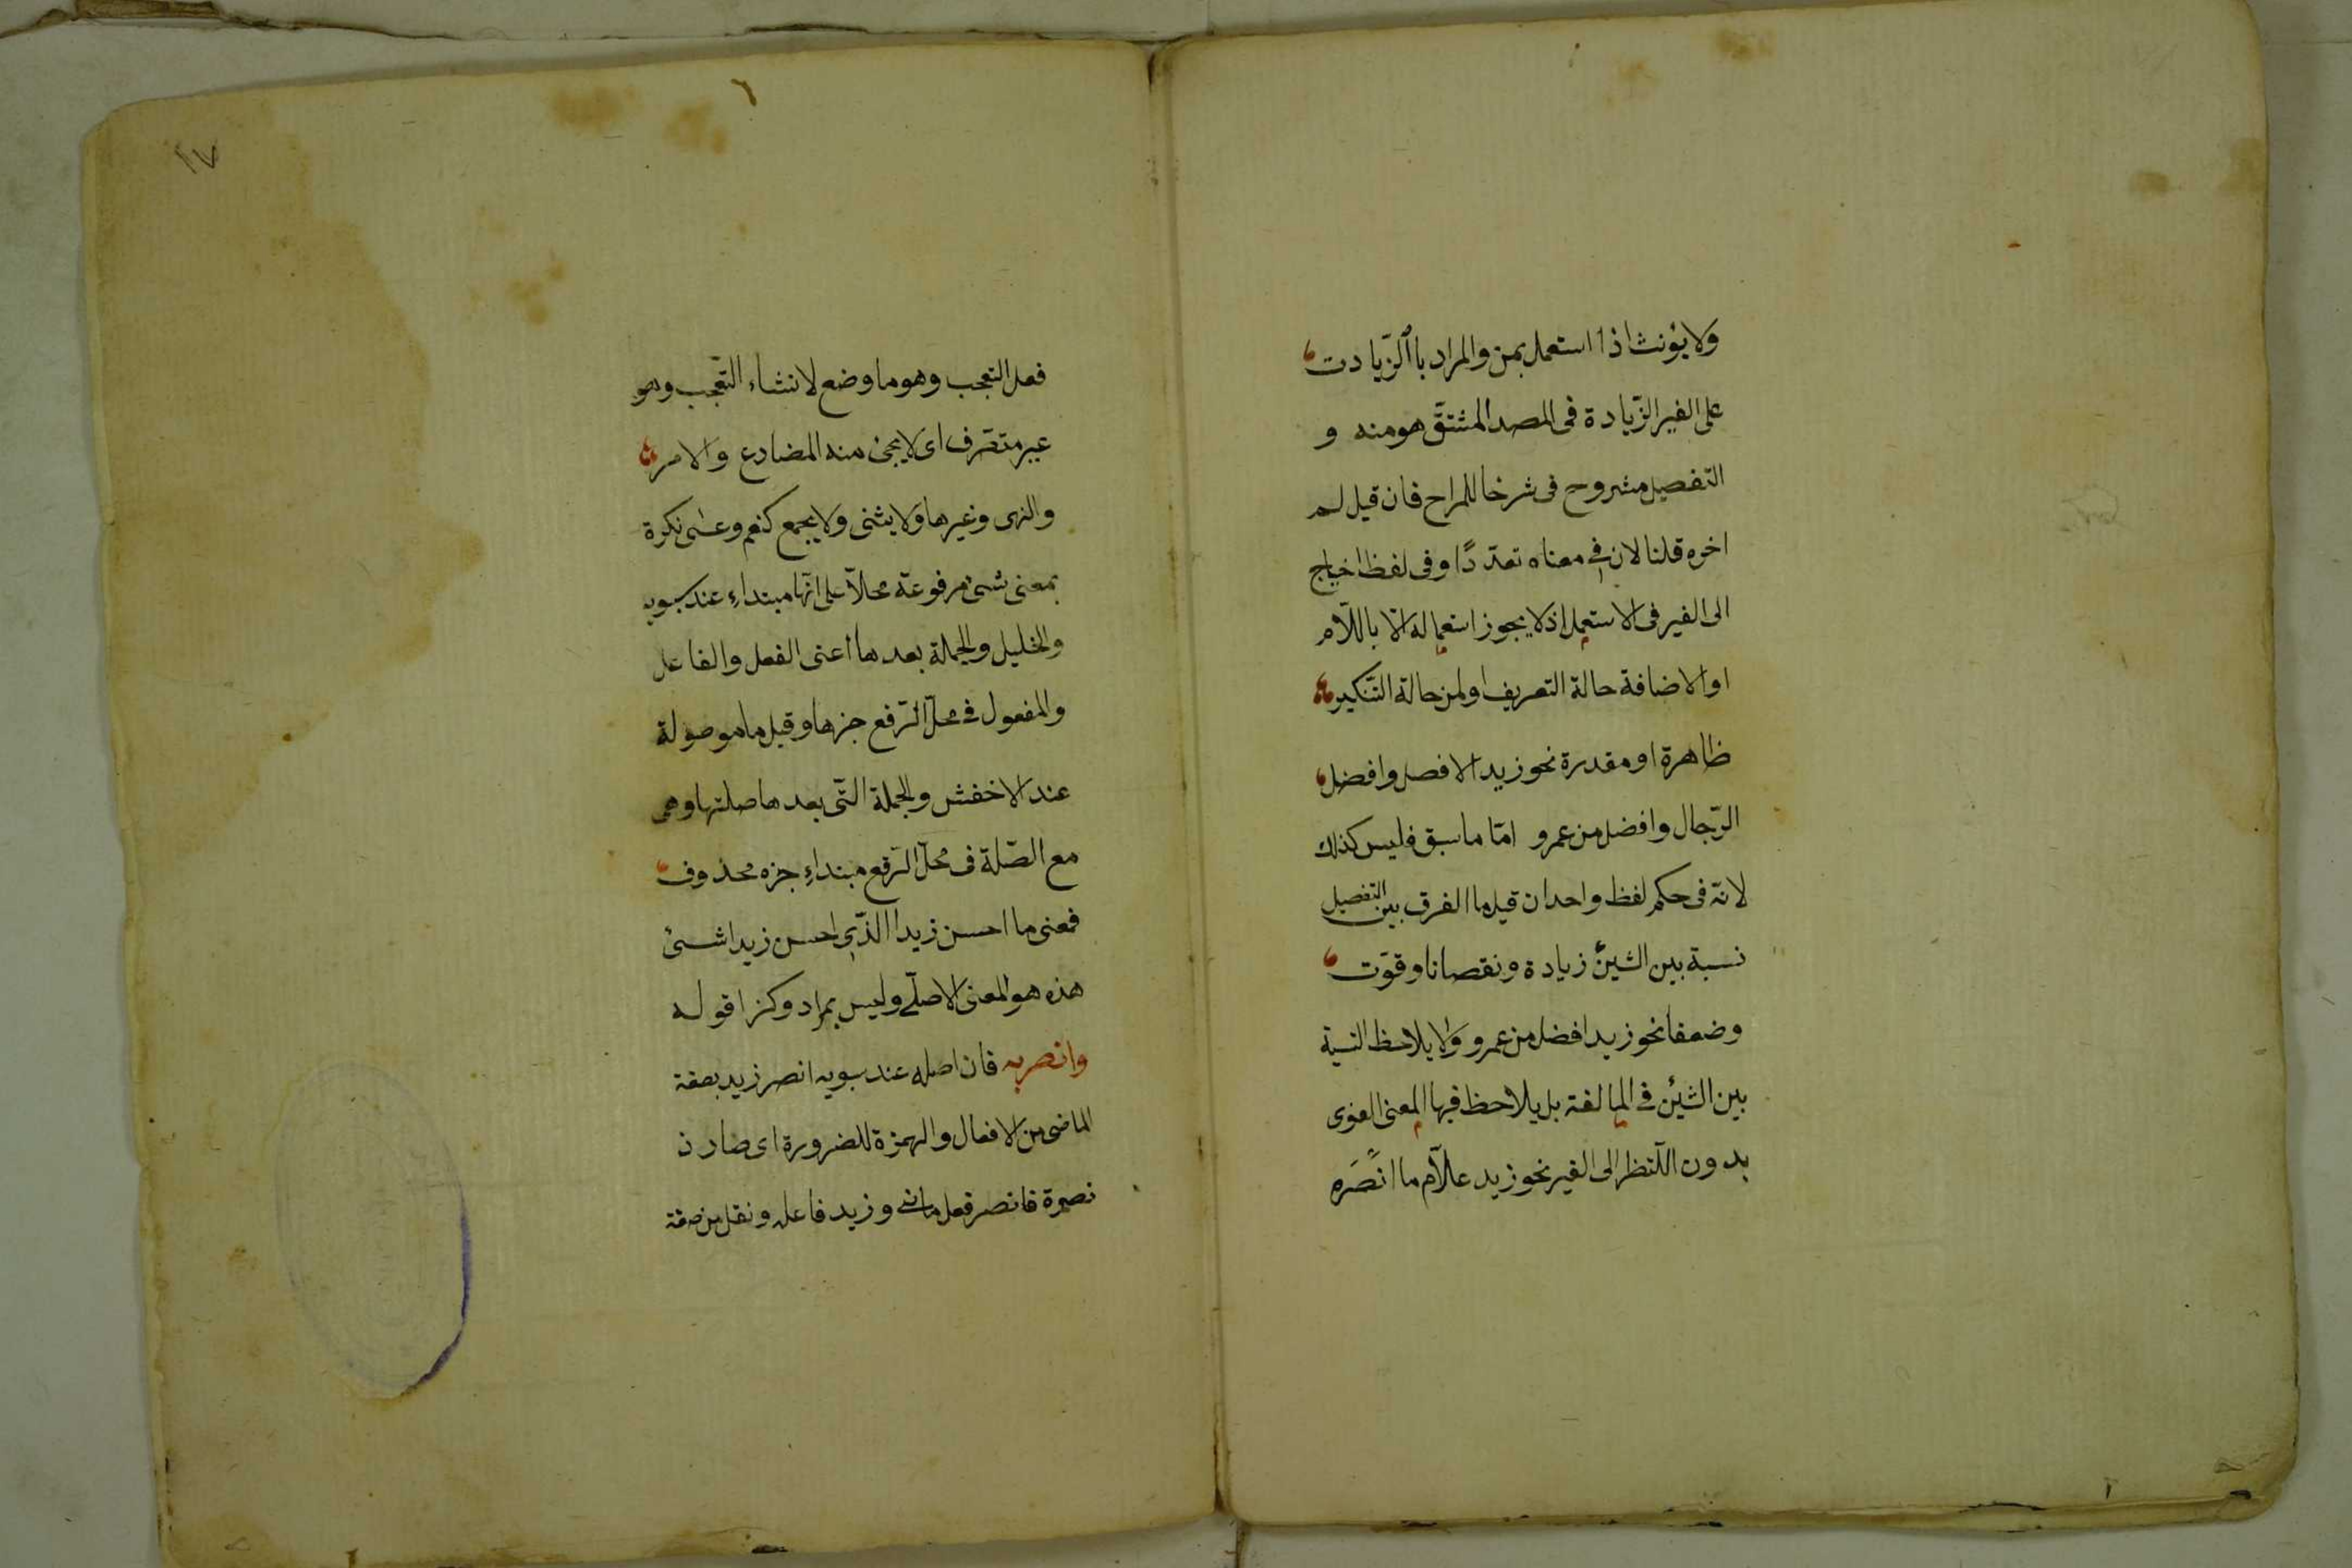 ولا يؤنث اذا استعمل بمن والمراد باالزّيادت
على الغير الزّيادة فى المصدر المشتقّ هو منه و
التفصيل مشروح فى شرخا للمراح فان قيل لم
اخره قلنا لان فى معناه تعدّدًا وفى لفظ احتياج
الى الغير فى الاستعمل اذ لا يجوز استعماله الّا باللّام
او الاضافة حالة التعريف او لمن حالة التّنكير
ظاهرة او مقدرة نحو زيد الافصل وافضل
الرّجال وافضل من عمرو امّا ما سبق فليس كذلك
لانّه فى حكم لفظ واحد ان قيل ما الفرق بين التفصيل
نسبة بين الشيئن زيادة ونقصانا وقوّت
وضعفا نحو زيد افضل من عمرو ولا يلاحظ النسبة
بين الشيئن فى المبالغة بل يلاحظ فيها المعنى الغوى
بدون اللّنظر الى الغير نحو زيد علّام ما انصَره
١٧
٦
فعل التعجب وهو ما وضع لانشاء التّعجب وهو
غير متصرّف اى لا يجئ منه المضارع والامر
والنهى وغيرها ولا يثنى ولا يجمع كنعم وعسى نكرة
بمعنى شئ مرفوعة محلّا على انّها مبتداء عند سبويه
والخليل والجملة بعدها اعنى الفعل والفاعل
والمفعول فى محلّ الرّفع جزها وقيل ما موصولة
عند الاخفش والجملة التّى بعدها صلتها وهى
مع الصّلة فى محلّ الرّفع مبتداء جزه محذوف
فمعنى ما احسن زيدا الذّى احسن زيدا شئ
هذه هو المعنى الاصلّى وليس بمراد وكزا قوله
وانصر به فان اصله عند سبويه انصر زيد بصفة
الماضى من الافعال والهمزة للضرورة اى صار ذ
نصرة فانصر فعل ماض وزيد فاعله ونقل من صفة